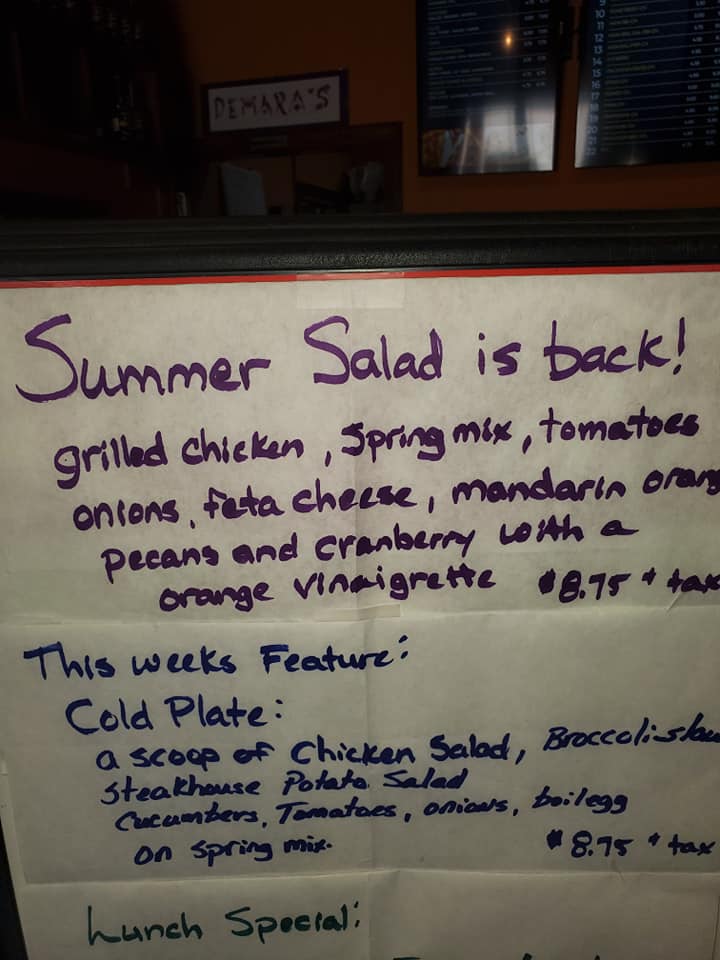 DEMARA'S
9
10
11
12
13
14
15
16
17
18
19
20
Summer Salad is back!
grilled chicken, Spring mix, tomatoes
onions, feta cheese, mandarin orang
pecans and cranberry with a
orange vinaigrette $8.75 + tax
This weeks Feature:
Cold Plate:
a scoop of Chicken Salad, Broccoli slaw
Steakhouse Potato Salad
Cucumbers, Tomatoes, onions, boilegg
on spring mix. $8.75 + tax
Lunch Special: